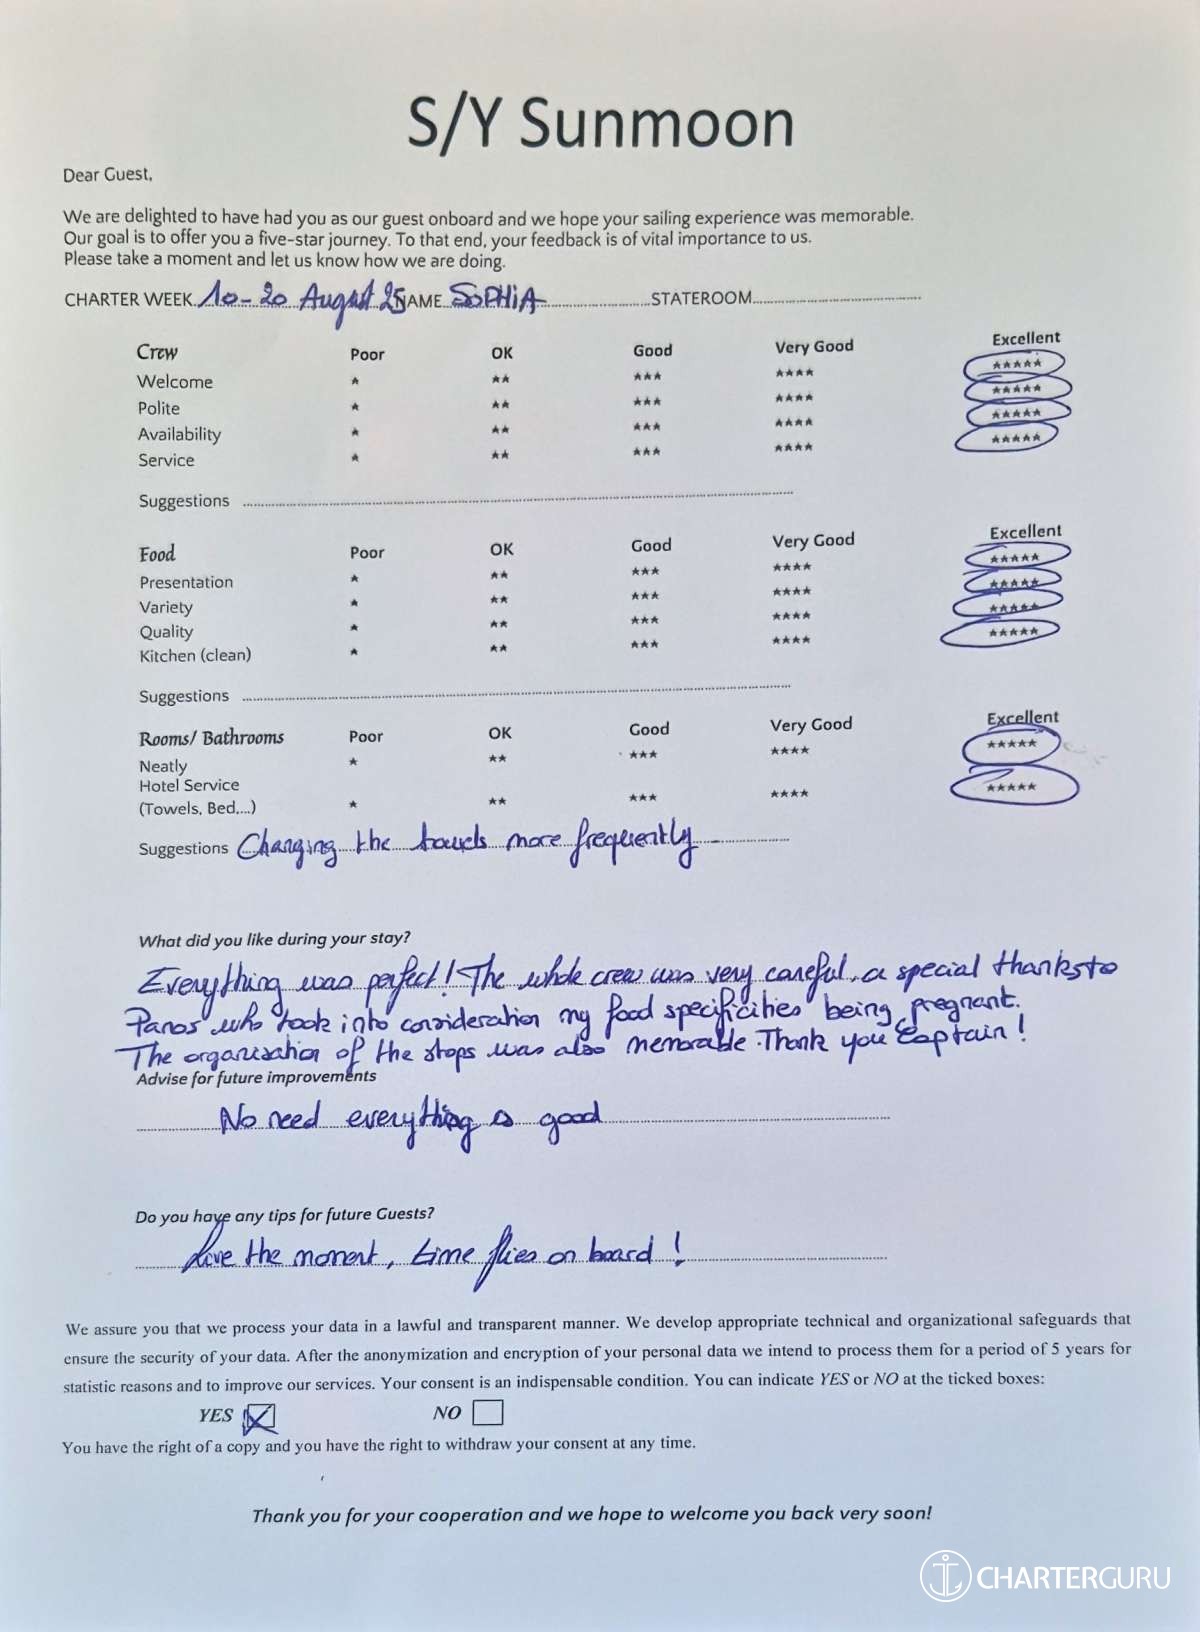 S/Y Sunmoon
Dear Guest,
We are delighted to have had you as our guest onboard and we hope your sailing experience was memorable.
Our goal is to offer you a five-star journey. To that end, your feedback is of vital importance to us.
Please take a moment and let us know how we are doing.
CHARTER WEEK 10-20 August 25 NAME SOPHiA STATEROOM
Crew Poor OK Good Very Good Excellent
Welcome * ** *** **** *****
Polite * ** *** **** *****
Availability * ** *** **** *****
Service * ** *** **** *****
Suggestions
Food Poor OK Good Very Good Excellent
Presentation * ** *** **** *****
Variety * ** *** **** *****
Quality * ** *** **** *****
Kitchen (clean) * ** *** **** *****
Suggestions
Rooms/ Bathrooms Poor OK Good Very Good Excellent
Neatly * ** *** **** *****
Hotel Service
(Towels, Bed,...) * ** *** **** *****
Suggestions Changing the towels more frequently
What did you like during your stay?
Everything was perfect! The whole crew was very careful. a special thanks to
Panos who took into consideration my food specificities being pregnant.
The organisation of the stops was also memorable. Thank you Captain!
Advise for future improvements
No need everything is good
Do you have any tips for future Guests?
Live the moment, time flies on board!
We assure you that we process your data in a lawful and transparent manner. We develop appropriate technical and organizational safeguards that
ensure the security of your data. After the anonymization and encryption of your personal data we intend to process them for a period of 5 years for
statistic reasons and to improve our services. Your consent is an indispensable condition. You can indicate YES or NO at the ticked boxes:
YES NO
You have the right of a copy and you have the right to withdraw your consent at any time.
Thank you for your cooperation and we hope to welcome you back very soon!
CHARTERGURU